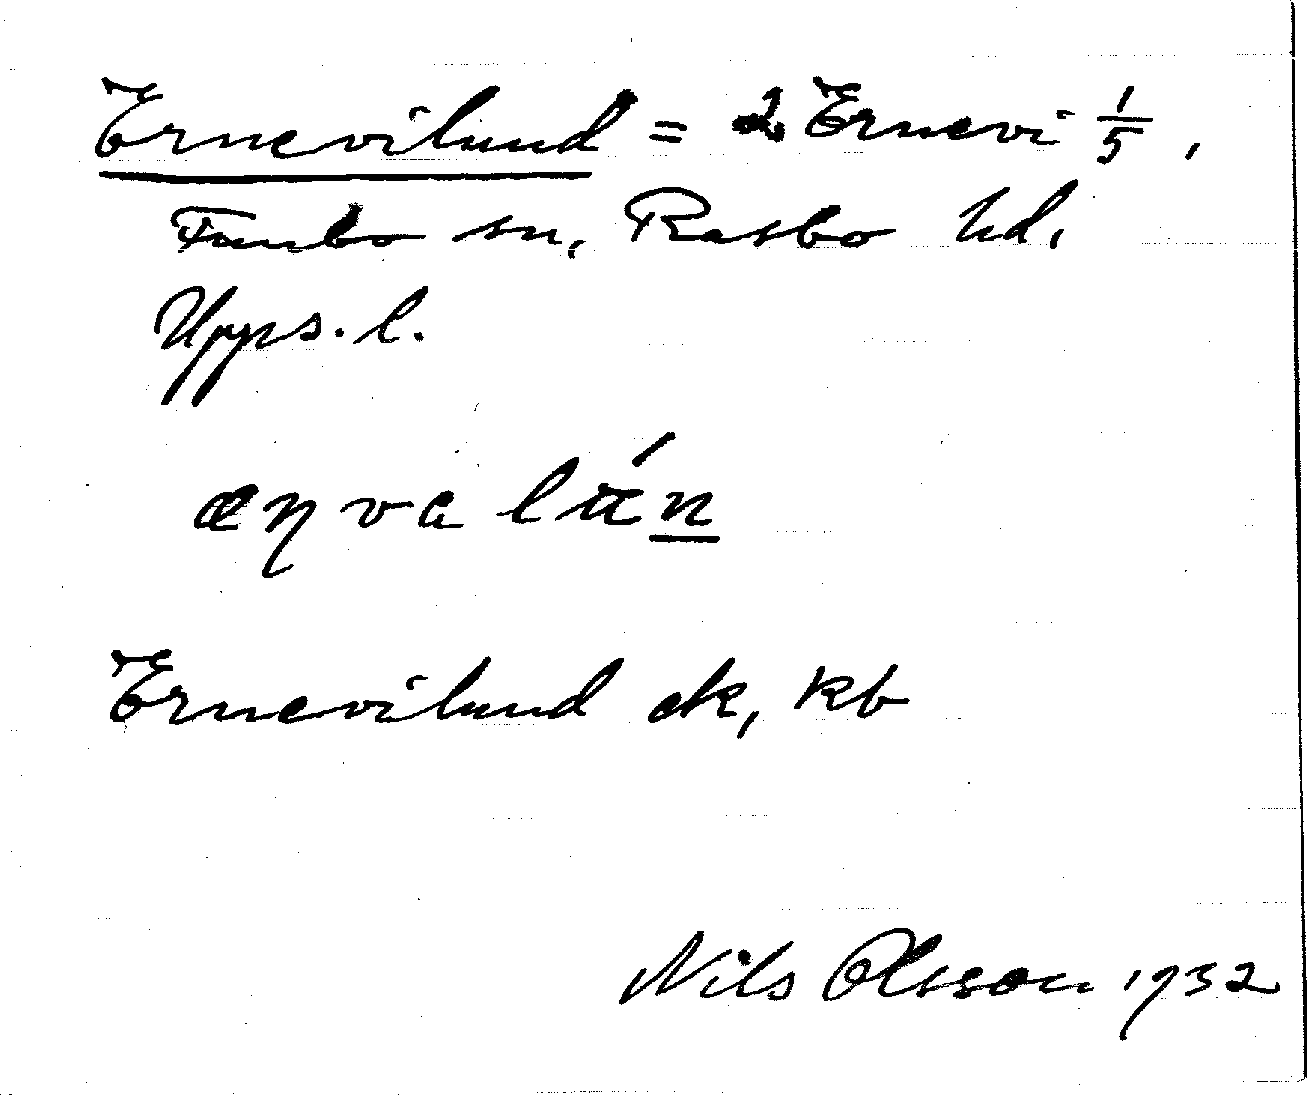 Ernevilund = 2 Ernevi 1/5,
Funbo sn, Rasbo hd,
Upps. l.
æŋva lún
Ernevilund ek, kb
Nils Olsson 1932